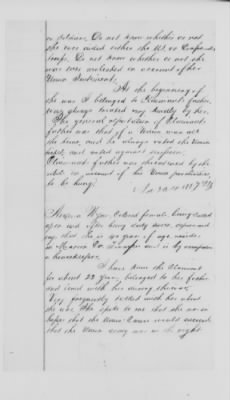 or soldiers. Do not know whether or not
she ever aided either the U.S. or Confederate
troops. Do not know whether or not she
was ever molested on account of her
Union Sentiments.
At the beginning of
the war I belonged to Claimant's father,
being always treated very kindly by her.
The general reputation of Claimant's
father was that of a Union man all
the time, and he always voted the Union
ticket, and voted against secession.
Claimant's father was threatened by the
rebels on account of his Union proclivities,
to be hung.
Colored female being called
upon and after being duly sworn, deposes and
says that she is years of age resides
in Marion Co. and is by occupation
a housekeeper.
I have known the Claimant
for about 22 years, belonged to her father
and lived with her during the war.
Very frequently talked with her about
the war. She spoke to me that she was in
hopes that the Union Cause would succeed
that the Union side was in the right